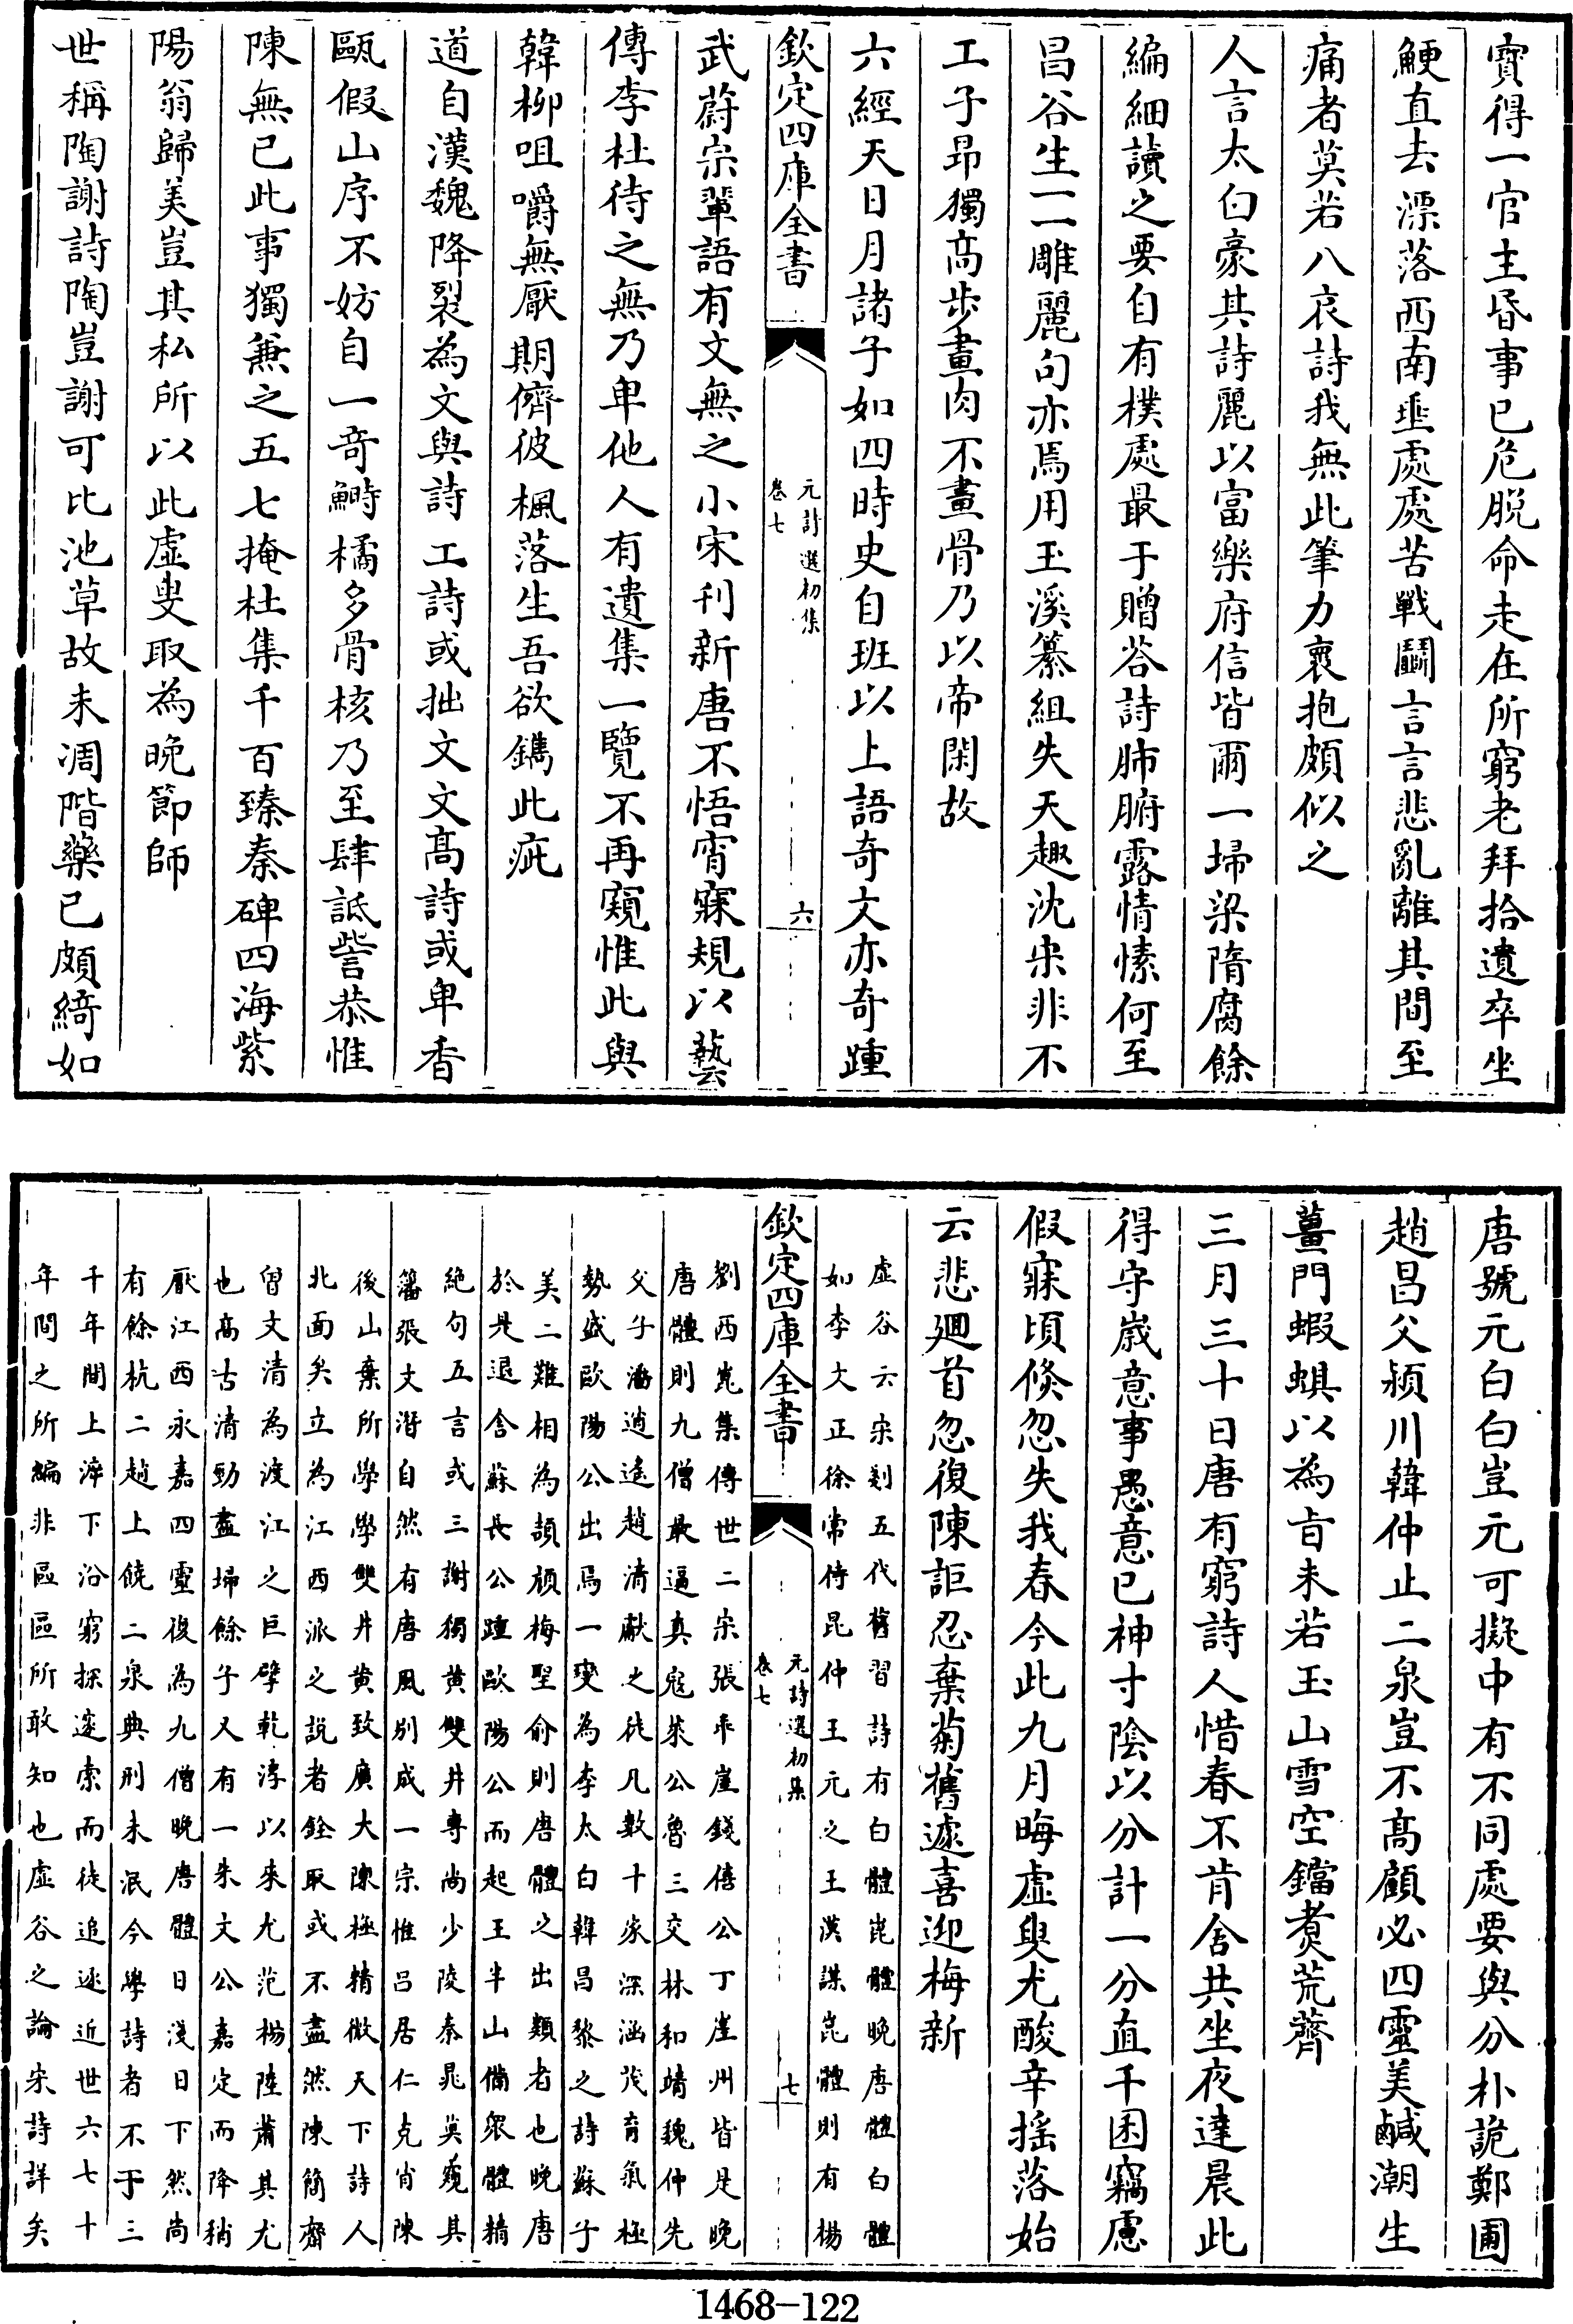 實得一官主昏事已危脱命走在所窮老拜拾遺卒坐
鯁直去漂落西南垂處處苦戰鬬言言悲亂離其間至
痛者莫若八哀詩我無此筆力襄抱頗似之
人言太白豪其詩麗以富樂府信皆爾一埽梁隋腐餘
編細讀之要自有樸處最于贈荅詩肺腑露情愫何至
昌谷生一一雕麗句亦焉用玉溪纂組失天趣沈宋非不
工子昂獨高步畫肉不畫骨乃以帝閑故
六經天日月諸子如四時史自班以上語奇文亦奇踵
欽定四庫全書
元詩選初集
卷七
六
武蔚宗輩語有文無之小宋刊新唐不悟宵寐規以藝
傳李杜待之無乃卑他人有遺集一覽不再窺惟此與
韓柳咀嚼無厭期儕彼楓落生吾欲鐫此疵
道自漢魏降裂為文與詩工詩或拙文文高詩或卑香
甌假山序不妨自一奇鰣橘多骨核乃至肆詆訾恭惟
陳無已此事獨兼之五七掩杜集千百臻秦碑四海紫
陽翁歸美豈其私所以此虛叟取為晚節師
世稱陶謝詩陶豈謝可比池草故未凋階藥已頗綺如
唐號元白白豈元可擬中有不同處要與分朴詭鄭圃
趙昌父潁川韓仲止二泉豈不高顧必四靈美鹹潮生
薑門蝦蜞以為旨未若玉山雪空鐺煑荒薺
三月三十日唐有窮詩人惜春不肯舍共坐夜達晨此
得守歲意事愚意已神寸陰以分計一分直千困竊慮
假寐頃倐忽失我春今此九月晦虛與尤酸辛搖落始
云悲廻首忽復陳詎忍棄菊舊遽喜迎梅新
虛谷云宋剗五代舊習詩有白體崑體晚唐體白體
如李文正徐常侍昆仲王元之王漢謀崑體則有楊
欽定四庫全書
元詩選初集
卷七
七
劉西崑集傳世二宋張乖崖錢僖公丁崖州皆是晚
唐體則九僧最逼真寇萊公魯三交林和靖魏仲先
父子潘逍遙趙清獻之徒凡數十家深涵茂育氣極
勢盛歐陽公出焉一變為李太白韓昌黎之詩蘇子
美二難相為頡頏梅聖俞則唐體之出類者也晚唐
於是退舍蘇長公踵歐陽公而起王半山備眾體精
絶句五言或三謝獨黄雙井專尚少陵秦晁莫窺其
籓張文潛自然有唐風别成一宗惟吕居仁克肖陳
後山棄所學學雙井黄致廣大陳極精微天下詩人
北面矣立為江西派之説者銓取或不盡然陳簡齋
曾文清為渡江之巨擘乾淳以來尤范楊陸蕭其尤
也高古清勁盡埽餘子又有一朱文公嘉定而降稍
厭江西永嘉四靈復為九僧晚唐體日淺日下然尚
有餘杭二趙上饒二泉典刑未泯今學詩者不于三
千年間上泝下沿窮探邃索而徒追逐近世六七十
年間之所編非區區所敢知也虛谷之論宋詩詳矣
1468-122